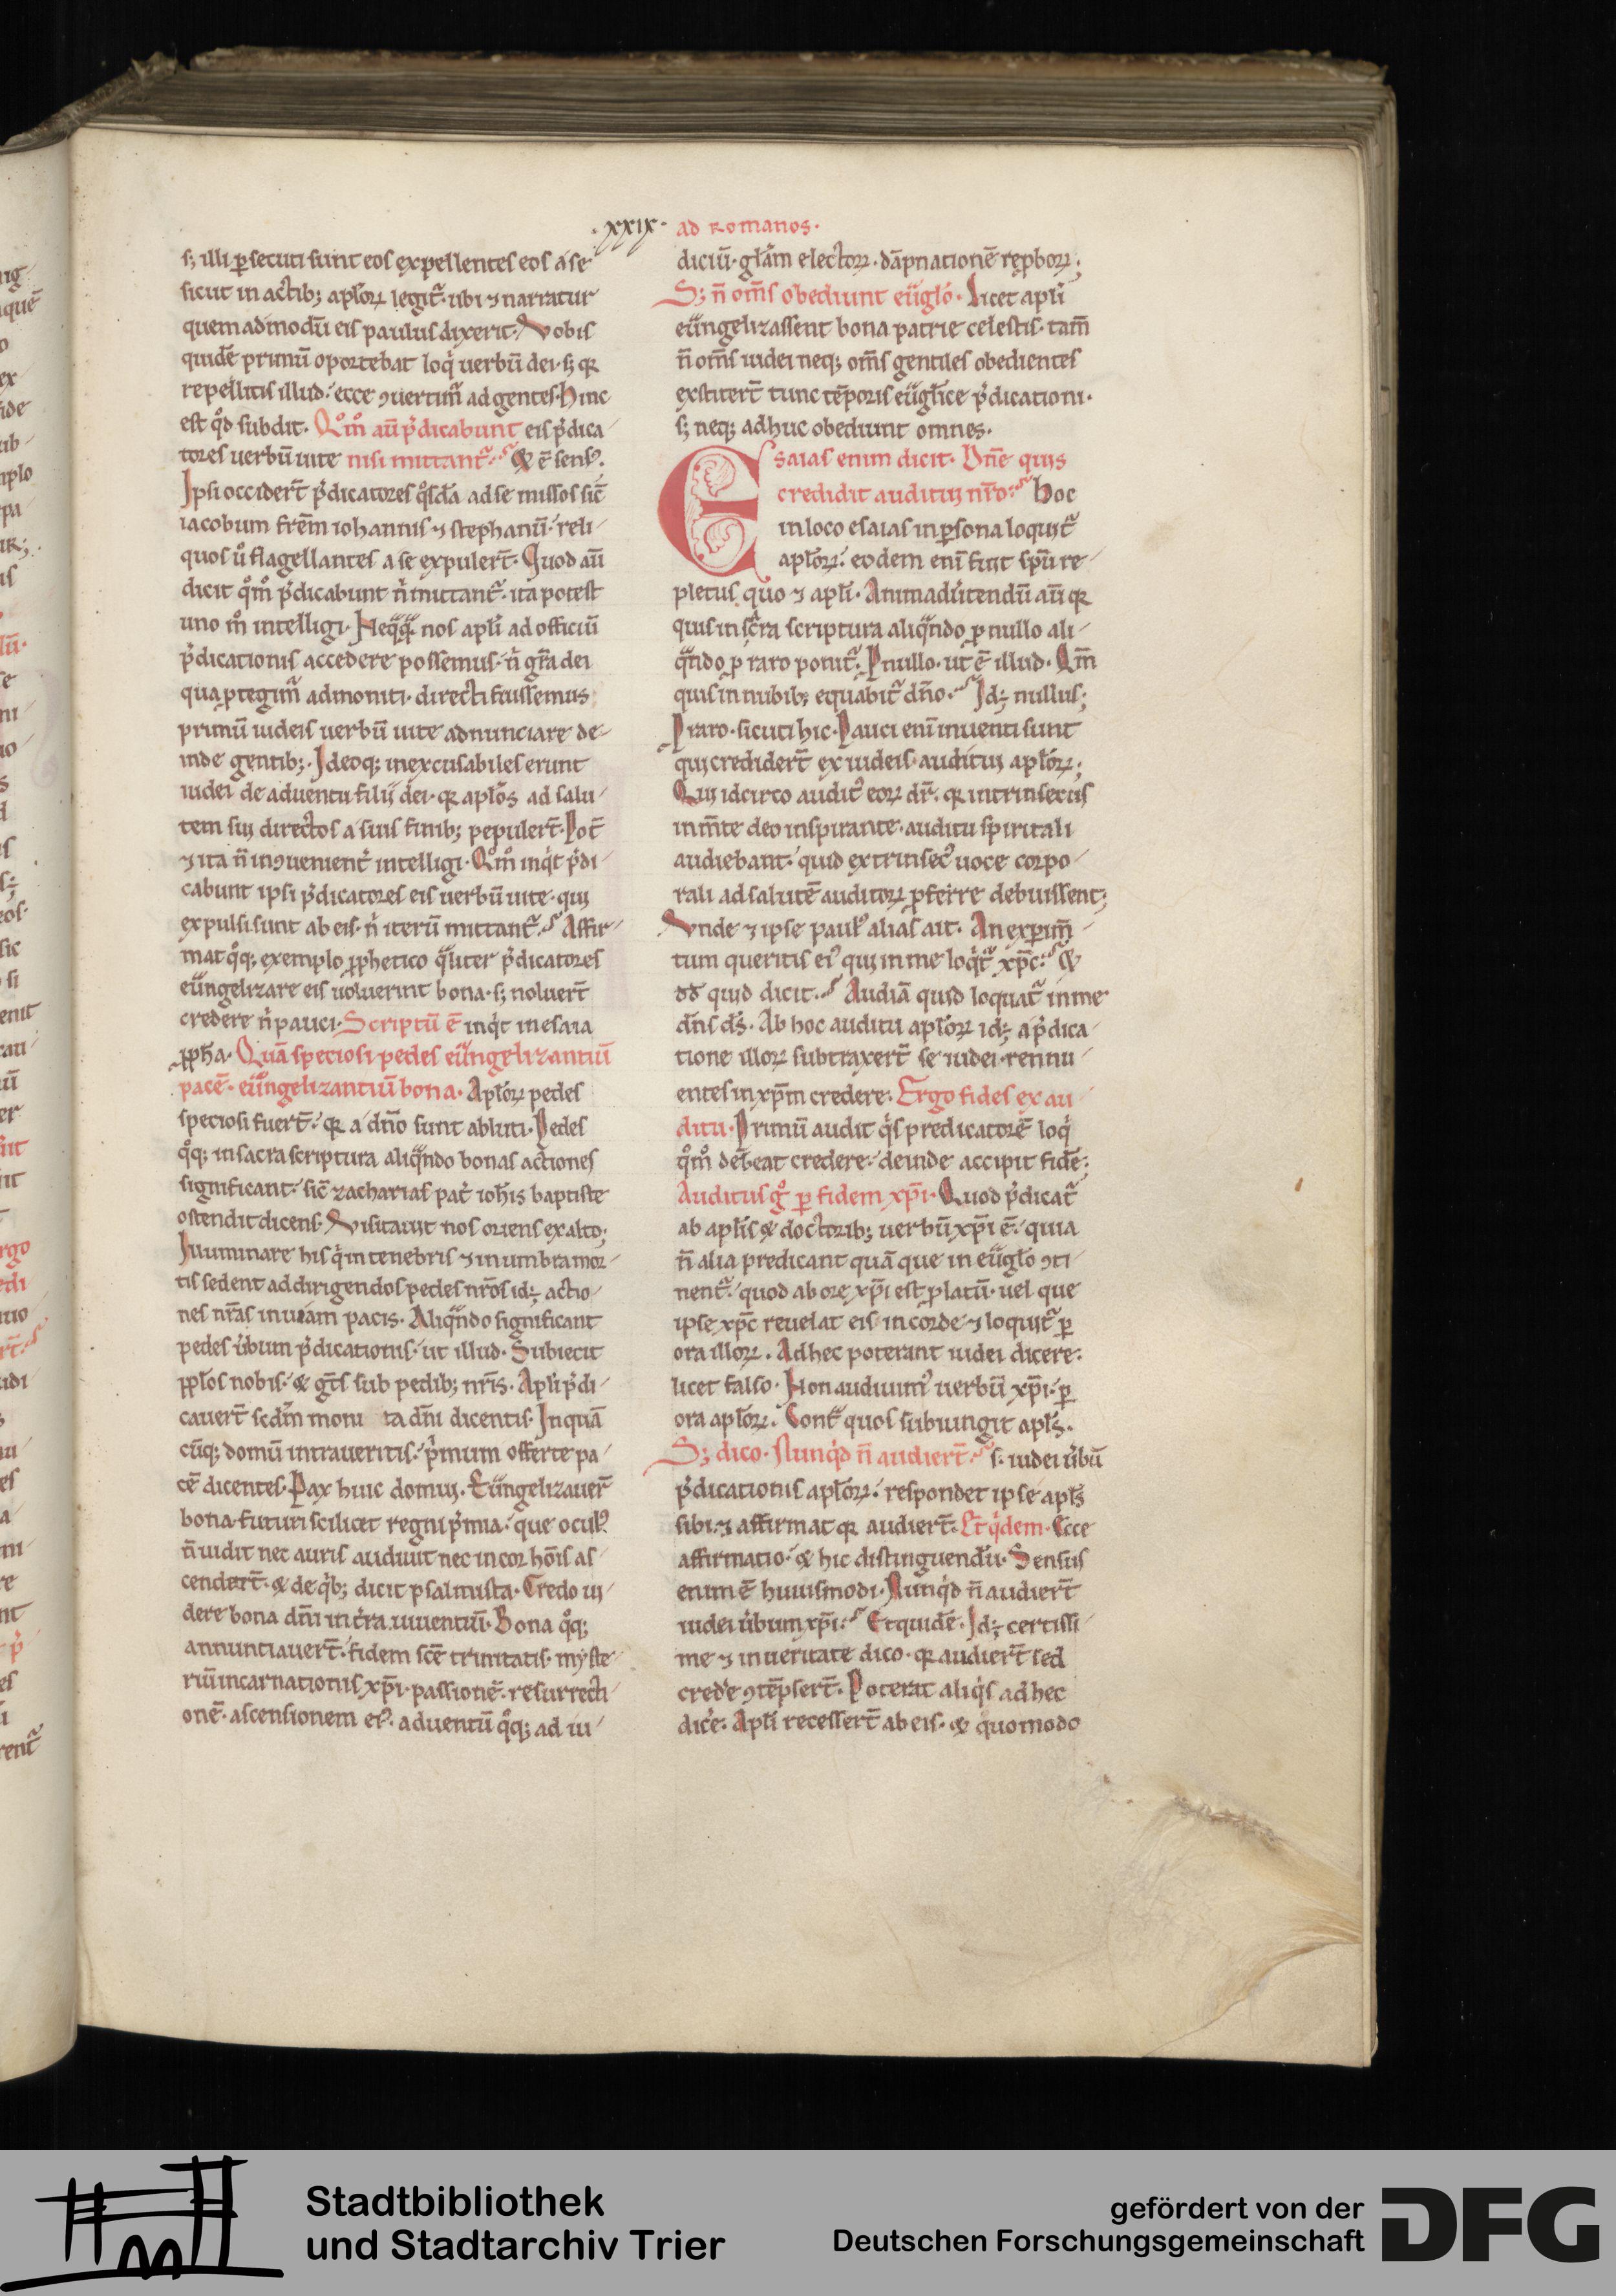 .xxix. ad Romanos.
s; illi ꝑsecuti sunt eos expellentes eos a se
sicut in actib; apl̅oꝝ legit᷑. ubi ⁊ narratur
quemadmodū eis paulus dixerit. Vobis
quidē primū oportebat loqͥ uerbū dei. s; qꝛ
repellitis illud. ecce ꝯuertim᷑ ad gentes. Hinc
est qͦd subdit. Qͦm̊ aū p̍dicabunt eis p̍dica
tores uerbū uite nisi mittant᷑. & ē sensꝰ.
Ipsi occidert̅ p̍dicatores qͦsdā ad se missos sic̅
iacobum frēm iohannis ⁊ stephanū. reli
quos ů flagellantes a se expulert̅. Quod aū
dicit qͦm̊ p̍dicabunt n̍ mittant᷑. ita potest
uno m̊ intelligi. Neqͣqͣ nos apl̅i ad officiū
p̍dicationis accedere possemus. n̍ gr̅a dei
qua ꝓtegim᷑ admoniti. directi fuissemus
primū iudeis uerbū uite adnunciare de
inde gentib;. Ideoq; inexcusabiles erunt
iudei de aduentu filij dei. qꝛ apl̅os ad salu
tem suꝫ directos a suis finib; pepulert̅. Pot̅
⁊ ita n̅ inꝯuenient̍ intelligi. Qͦm̊ inqͥt p̍di
cabunt ipsi p̍dicatores eis uerbū uite. quꝫ
expulsi sunt ab eis. n̍ iterū mittant᷑. Affir
mat qͦq; exemplo ꝓphetico qͣliter p̍dicatores
euͣngelizare eis uoluerint bona. s; noluert̅
credere n̍ pauci. Scriptū ē inqͥt in esaia
ꝓph̅a. Quā speciosi pedes euͣngelizantiū
pacē. euͣngelizantiū bona. Apl̅oꝝ pedes
speciosi fuert̅. qꝛ a dn̅o sunt abluti. Pedes
qͦq; in sacra scriptura aliqͣndo bonas actiones
significant. sic̅ zacharias pat̍ ioh̅is baptiste
ostendit dicens. Visitauit nos oriens ex alto;
Illuminare his qͥ in tenebris ⁊ in umbra mor
tis sedent ad dirigendos pedes nr̅os id; actio
nes nr̅as in uiam pacis. Aliqͣndo significant
pedes u̍bum p̍dicationis. ut illud. Subiecit
ppl̅os nobis. & gt̅s sub pedib; nr̅is. Apl̅i p̍di
cauert̅ scdm̅ moni ta dn̅i dicentis. In quā
cūq; domū intraueritis. pͥmum offerte pa
cē dicentes. Pax huic domuꝫ. Euͣngelizauer̅
bona futuri scilicet regni p̍mia. que oculꝰ
n̅ uidit nec auris audiuit nec in cor ho̅is as
cendert̅. & de qͥb; dicit psalmista. Credo ui
dere bona dn̅i in t̍ra uiuentiū. Bona qͦq;
annuntiauert̅. fidem sc̅e trinitatis. myste
riū incarnationis xp̅i. passionē. resurrecti
onē. ascensionem eiꝰ. aduentū qͦq; ad iu
diciū. gl̅am electoꝝ. dāpnationē reꝓboꝝ;
S; n̅ om̅s obediunt euͣgl̅o. Licet apl̅i
euͣngelizassent bona patrie celestis. tam̅
n̅ om̅s iudei neq; om̅s gentiles obedientes
exstitert̅ tunc te̅poris euͣgl̅ice p̍dicationi.
s; neq; adhuc obediunt omnes.
Esaias enim dicit. Dn̅e quis
credidit audituꝫ nr̅o. Hoc
in loco esaias in ꝑsona loquit᷑
apl̅oꝝ. eodem eni̅ fuit sp̅u re
pletus quo ⁊ apl̅i. Animadu̍tendū aū qꝛ
quis in sc̅ra scriptura aliqͣndo ꝓ nullo ali
qͣndo ꝓ raro ponit᷑. P nullo. ut ē illud. Qm̅
quis in nubib; equabit᷑ dn̅o. Id; nullus;
P raro. sicuti hic. Pauci eni̅ inuenti sunt
quꝫ credidert̅ ex iudeis audituꝫ apl̅oꝝ;
Quꝫ idcirco auditꝰ eoꝝ dr̅. qꝛ intrinsecus
in m̅te deo inspirante. auditu spiritali
audiebant. quid extrinsecꝰ uoce corpo
rali ad salutē auditoꝝ ꝓferre debuissent;
Vnde ⁊ ipse paulꝰ alias ait. An exꝑim̅
tum queritis eiꝰ quꝫ in me loqͥt᷑ xp̅c. &
dd quid dicit. Audiā quid loquat᷑ in me
dn̅s ds̅. Ab hoc auditu apl̅oꝝ id; a p̍dica
tione illoꝝ subtraxert̅ se iudei. rennu
entes in xp̅m credere. Ergo fides ex au
ditu. Primū audit qͥs predicatorē loqͥ
qͦm̊ debeat credere. deinde accipit fidē;
Auditus gͦ ꝑ fidem xp̅i. Quod p̍dicat᷑
ab apl̅is & doctorib; uerbū xp̅i ē. quia
n̅ alia predicant quā que in euͣgl̅o ꝯti
nent᷑. quod ab ore xp̅i est ꝓlatū. uel que
ipse xp̅c reuelat eis in corde ⁊ loquit᷑ ꝑ
ora illoꝝ. Ad hec poterant iudei dicere.
licet falso. Non audiuimꝰ uerbū xp̅i. ꝑ
ora apl̅oꝝ. Contͣ quos subiungit apl̅s.
S; dico. Nunqͥd n̅ audiert̅. s. iudei u̍bū
p̍dicationis apl̅oꝝ. respondet ipse apl̅s
sibi. ⁊ affirmat qꝛ audiert̅. Et qͥdem. Ecce
affirmatio. & hic distinguendū. Sensus
enim ē huiusmodi. Nunqͥd n̅ audiert̅
iudei u̍bum xp̅i. Et quidē. Id; certissi
me ⁊ in ueritate dico. qꝛ audiert̅ sed
cred̍e ꝯte̅psert̅. Poterat aliqͥs ad hec
dic̍e. Apl̅i recessert̅ ab eis. & quomodo
Stadtbibliothek
und Stadtarchiv Trier
gefördert von der
Deutschen Forschungsgemeinschaft
DFG